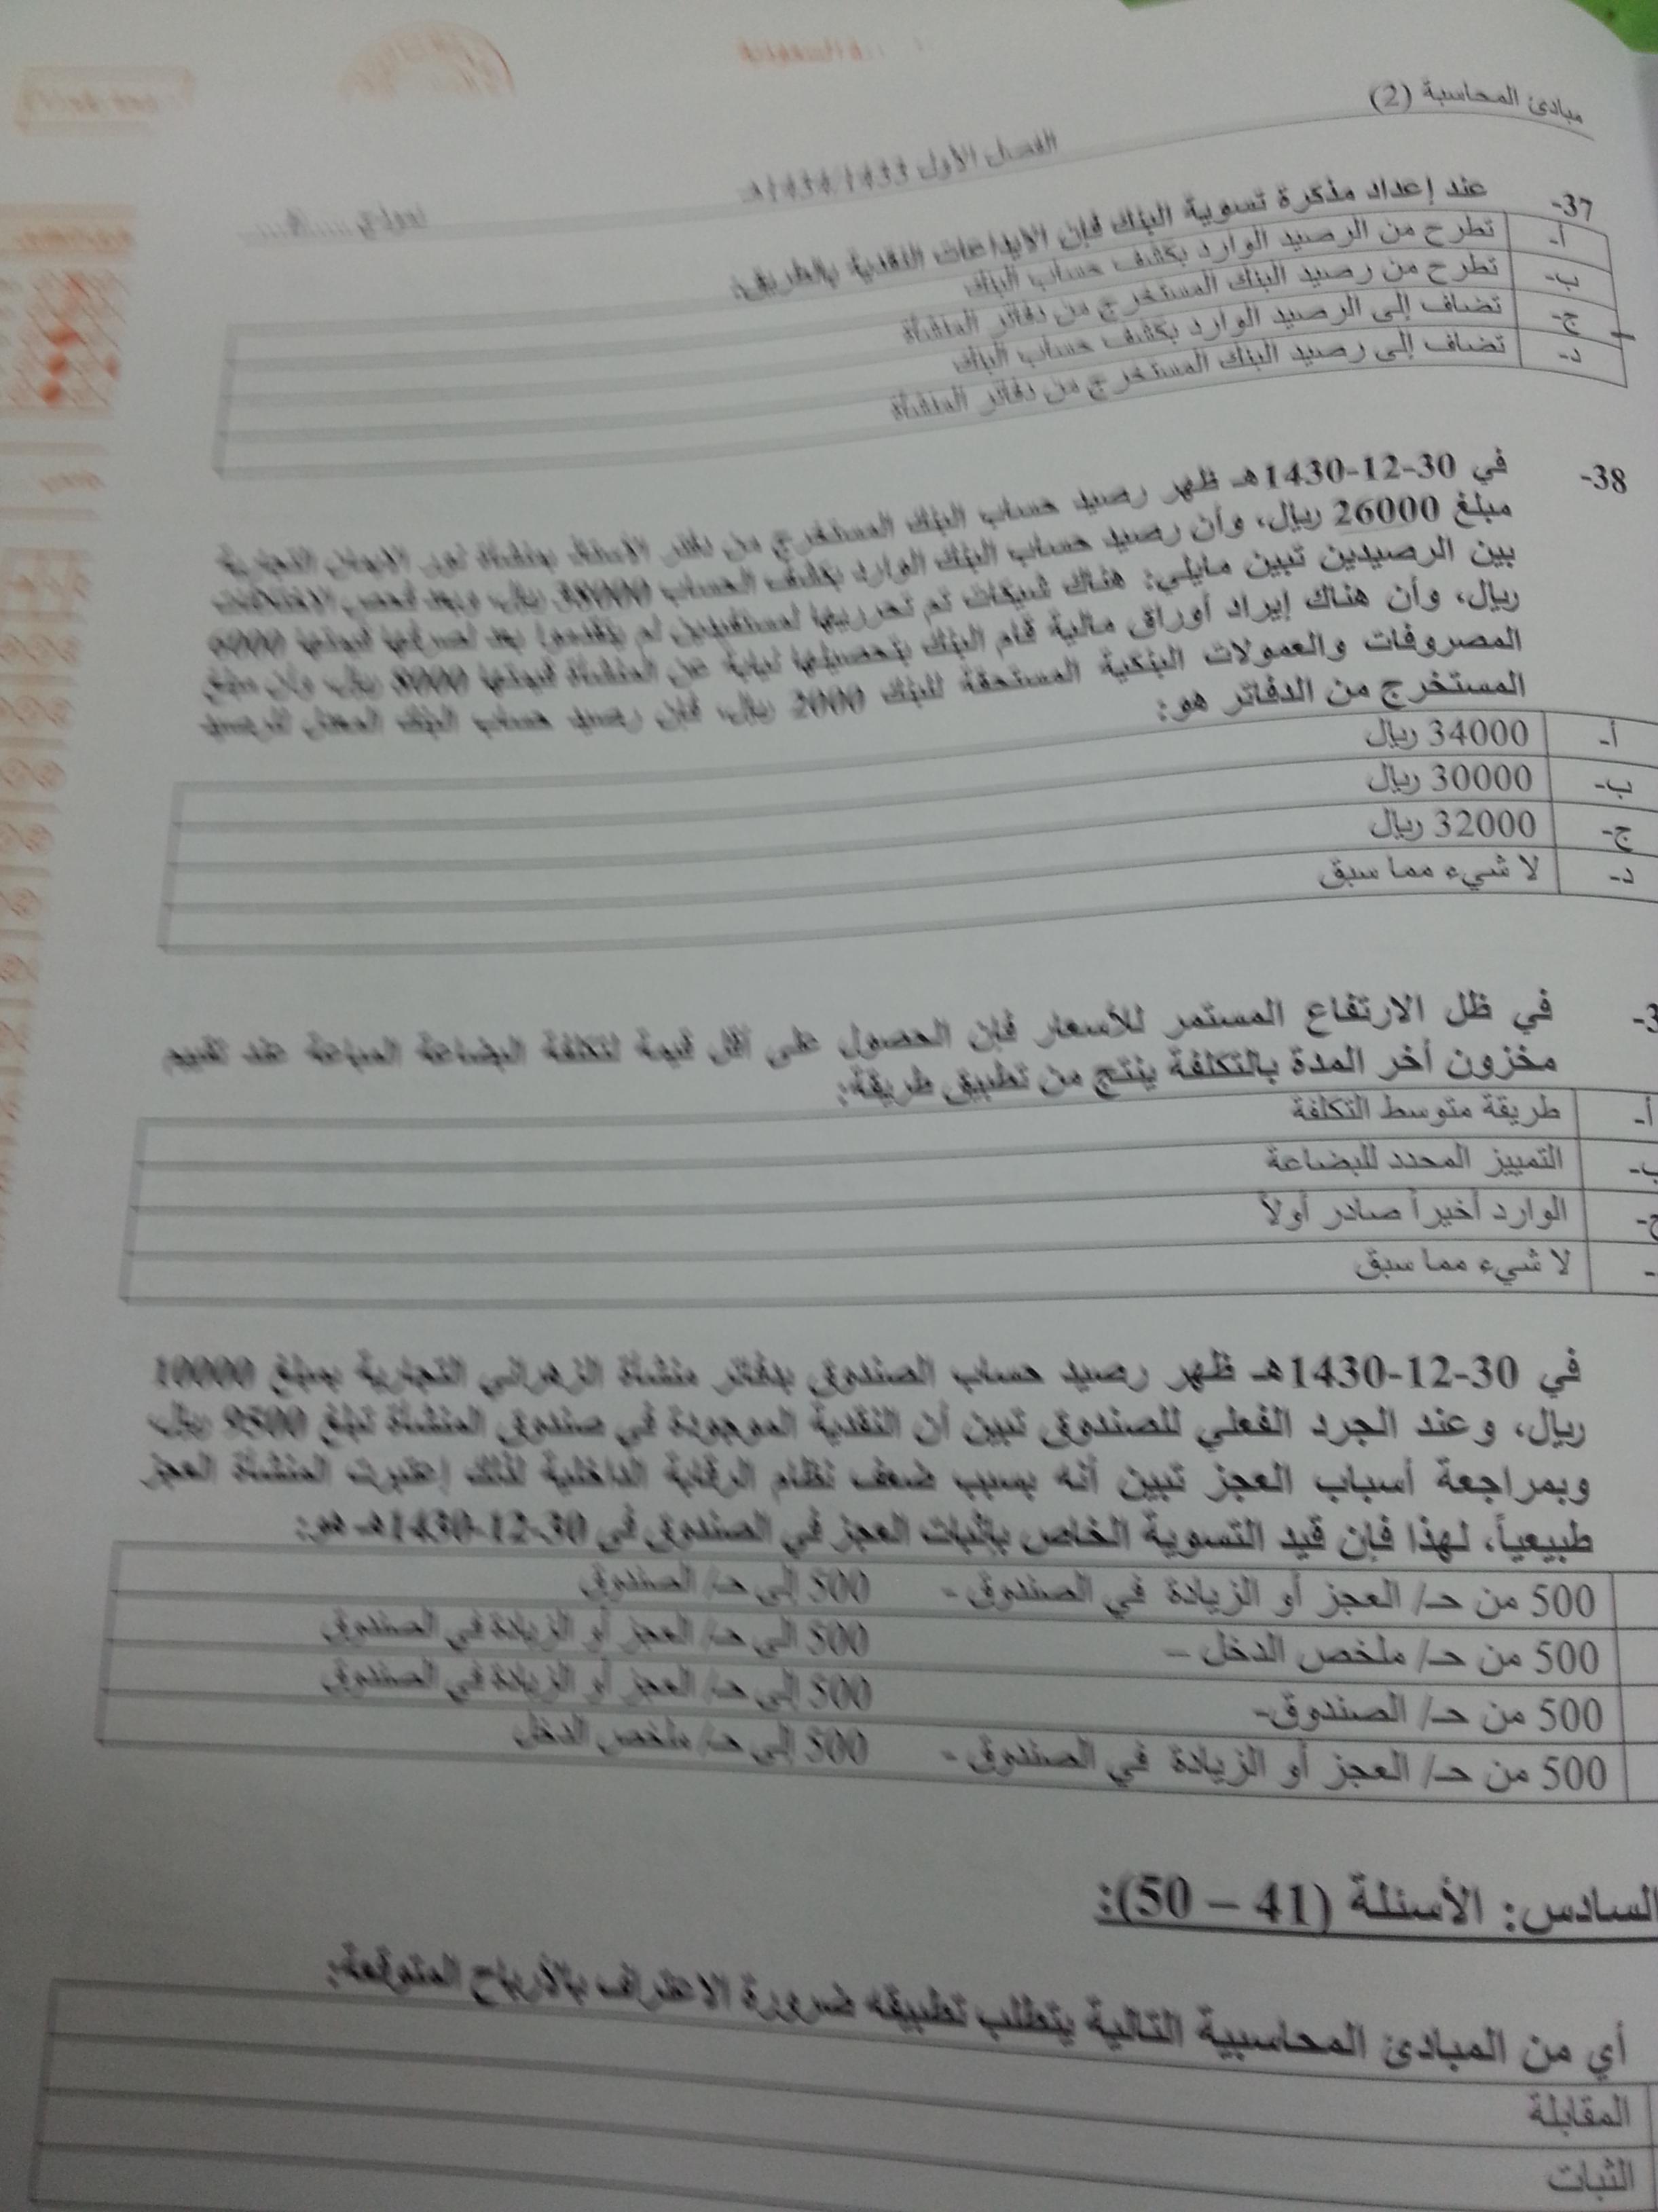 مبادئ المحاسبة (2)
الفصل الأول 1434/1433هـ
نموذج
37- عند إعداد مذكرة تسوية البنك فإن الايداعات النقدية بالطريق:
أ- تطرح من الرصيد الوارد بكشف حساب البنك
ب- تطرح من رصيد البنك المستخرج من دفاتر المنشأة
ج- تضاف إلى الرصيد الوارد بكشف حساب البنك
د- تضاف إلى رصيد البنك المستخرج من دفاتر المنشأة
38- في 30-12-1430هـ ظهر رصيد حساب البنك المستخرج من دفتر الأستاذ بمنشأة نور الايمان التجارية
مبلغ 26000 ريال، وأن رصيد حساب البنك الوارد بكشف الحساب 38000 ريال، وبعد فحص الاختلافات
بين الرصيدين تبين مايلي: هناك شيكات تم تحريرها لمستفيدين لم يتقدموا بعد لصرفها قيمتها 6000
ريال، وأن هناك إيراد أوراق مالية قام البنك بتحصيلها نيابة عن المنشأة قيمتها 8000 ريال، وأن مبلغ
المصروفات والعمولات البنكية المستحقة للبنك 2000 ريال، فإن رصيد حساب البنك المعدل للرصيد
المستخرج من الدفاتر هو:
أ- 34000 ريال
ب- 30000 ريال
ج- 32000 ريال
د- لا شيء مما سبق
3- في ظل الارتفاع المستمر للأسعار فإن الحصول على أقل قيمة لتكلفة البضاعة المباعة عند تقييم
مخزون أخر المدة بالتكلفة ينتج من تطبيق طريقة:
أ- طريقة متوسط التكلفة
ب- التمييز المحدد للبضاعة
ج- الوارد أخيراً صادر أولاً
- لا شيء مما سبق
في 30-12-1430هـ ظهر رصيد حساب الصندوق بدفاتر منشأة الزهراني التجارية بمبلغ 10000
ريال، وعند الجرد الفعلي للصندوق تبين أن النقدية الموجودة في صندوق المنشأة تبلغ 9500 ريال
وبمراجعة أسباب العجز تبين أنه بسبب ضعف نظام الرقابة الداخلية لذلك إعتبرت المنشأة العجز
طبيعياً، لهذا فإن قيد التسوية الخاص بإثبات العجز في الصندوق في 30-12-1430هـ هو:
500 من حـ/ العجز أو الزيادة في الصندوق - 500 إلى حـ/ الصندوق
500 من حـ/ ملخص الدخل – 500 إلى حـ/ العجز أو الزيادة في الصندوق
500 من حـ/ الصندوق- 500 إلى حـ/ العجز أو الزيادة في الصندوق
500 من حـ/ العجز أو الزيادة في الصندوق - 500 إلى حـ/ ملخص الدخل
السادس: الأسئلة (41 – 50):
أي من المبادئ المحاسبية التالية يتطلب تطبيقه ضرورة الاعتراف بالأرباح المتوقعة:
المقابلة
الثبات